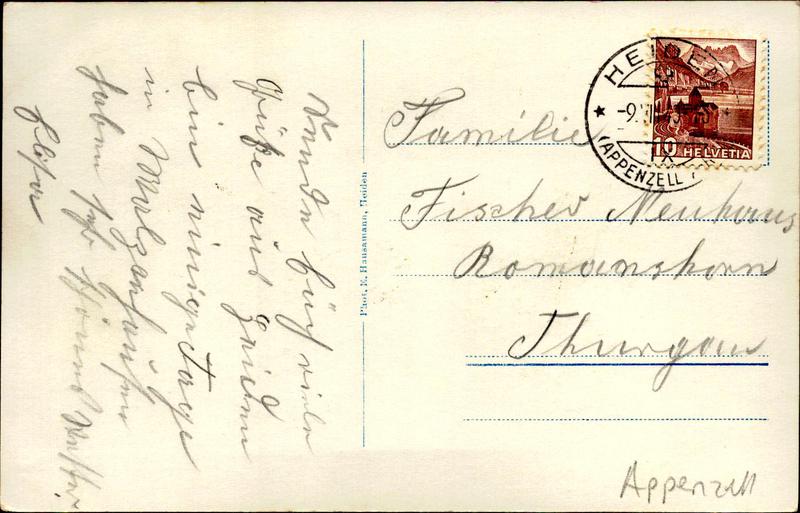 Sende Euch viele
Grüße aus Heiden
bin einige Tage
in Walzenhausen
haben sehr schönes Wetter.
Phot. E. Hausamann, Heiden
HEIDEN
-9.
(APPENZELL
10 HELVETIA
Familie
Fischer Neuhaus
Romanshorn
Thurgau
Appenzell